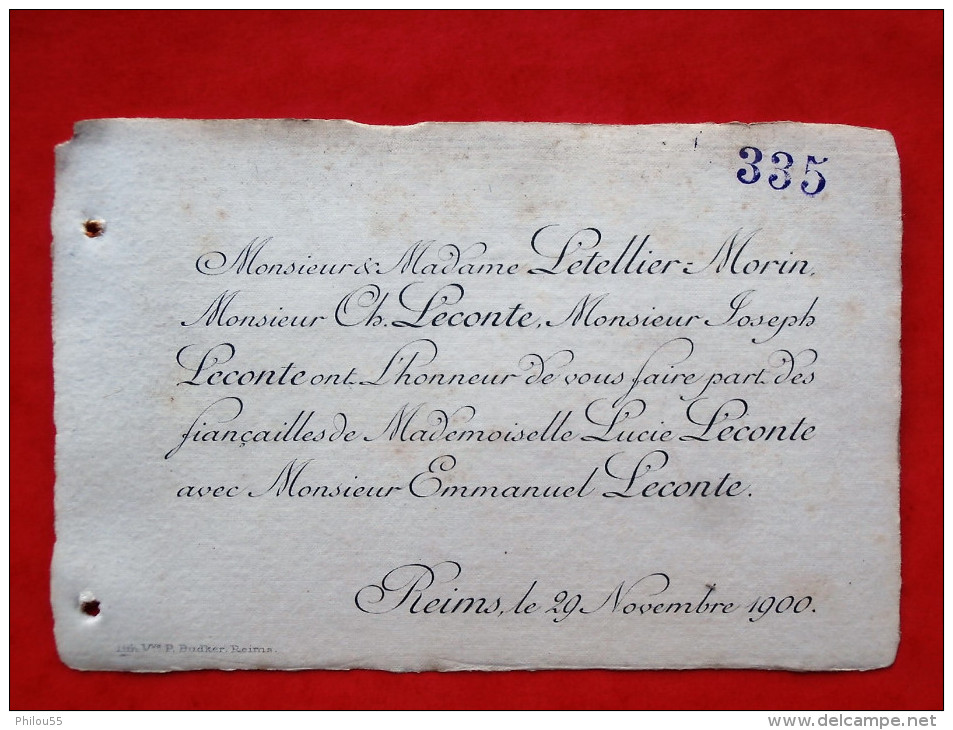 335
Monsieur & Madame Letellier-Morin,
Monsieur Ch. Leconte, Monsieur Joseph
Leconte ont L'honneur de vous faire part des
fiançailles de Mademoiselle Lucie Leconte
avec Monsieur Emmanuel Leconte.
Reims, le 29 Novembre 1900.
Lith. Vve P. Budker, Reims.
Philou55
www.delcampe.net